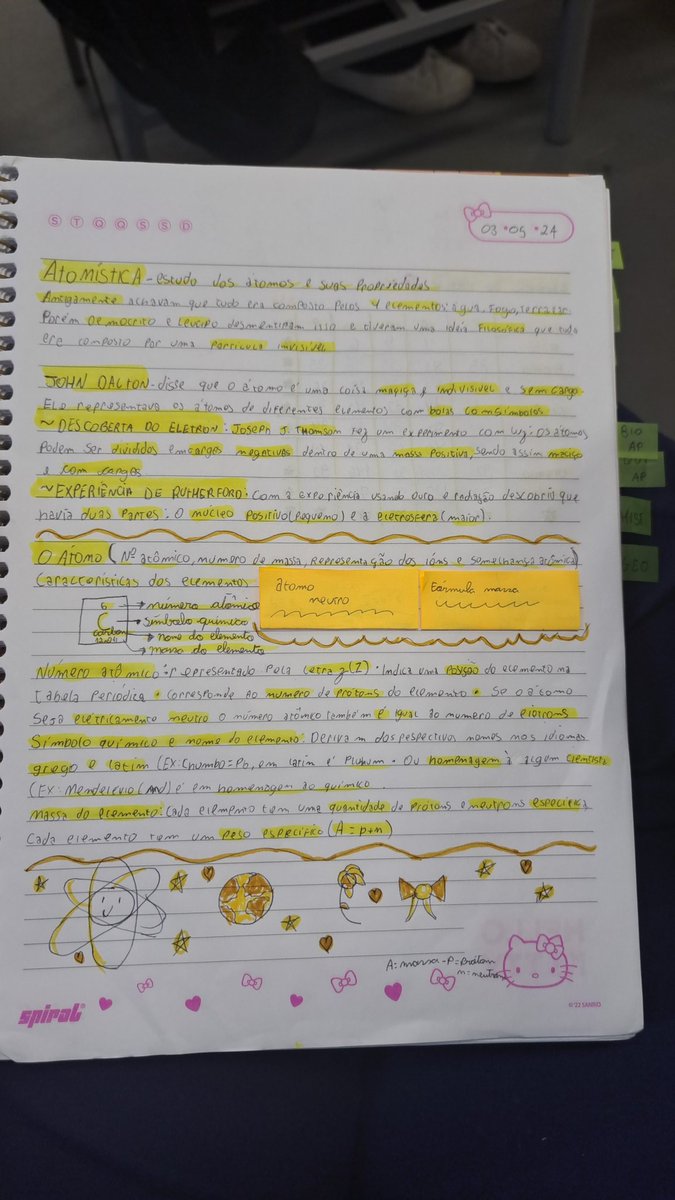 S T Q Q S S D
03 • 05 • 24
ATOMÍSTICA - estudo dos átomos e suas propriedades
Antigamente achavam que tudo era composto pelos 4 elementos: água, Fogo, terra e ar.
Porém Demócrito e Leucipo desmentiram isso e tiveram uma ideia Filosófica que tudo
era composto por uma partícula invisível
JOHN DALTON - disse que o átomo é uma coisa maciça, indivisível e sem carga
Ele representava os átomos de diferentes elementos com bolas com símbolos
~ DESCOBERTA DO ELETRON: Joseph J. Thomson Fez um experimento com luz: os átomos
Podem ser divididos em cargas negativas dentro de uma massa positiva, sendo assim maciço
e com cargas
~ EXPERIÊNCIA DE RUTHERFORD: Com a experiência usando ouro e radiação descobriu que
havia duas partes: O núcleo Positivo (Pequeno) e a eletrosfera (maior).
O Átomo (Nº atômico, numero de massa, Representação dos íons e semelhança atômica)
Características dos elementos
átomo
neutro
Fórmula massa
6
C
carbon
→ número atômico
→ símbolo químico
→ nome do elemento
→ massa do elemento
Número atômico: representado pela letra z (Z) • Indica uma posição do elemento na
tabela Periódica • Corresponde ao numero de prótons do elemento • Se o átomo
seja eletricamente neutro o número atômico também é igual ao numero de elétrons
Símbolo químico e nome do elemento: Derivam dos respectivos nomes nos idiomas
grego e latim (Ex: Chumbo = Po, em latim é Plubum • Ou homenagem à algem cientista
(Ex: Mendelévio (Md) é em homenagem ao químico.
Massa do elemento: Cada elemento tem uma quantidade de prótons e neutrons específica
Cada elemento tem um peso específico (A = p+n)
A = massa - P = Próton
n = neutron
spiral®
©'22 SANRIO
BIO
AP
AP
HIST
GEO